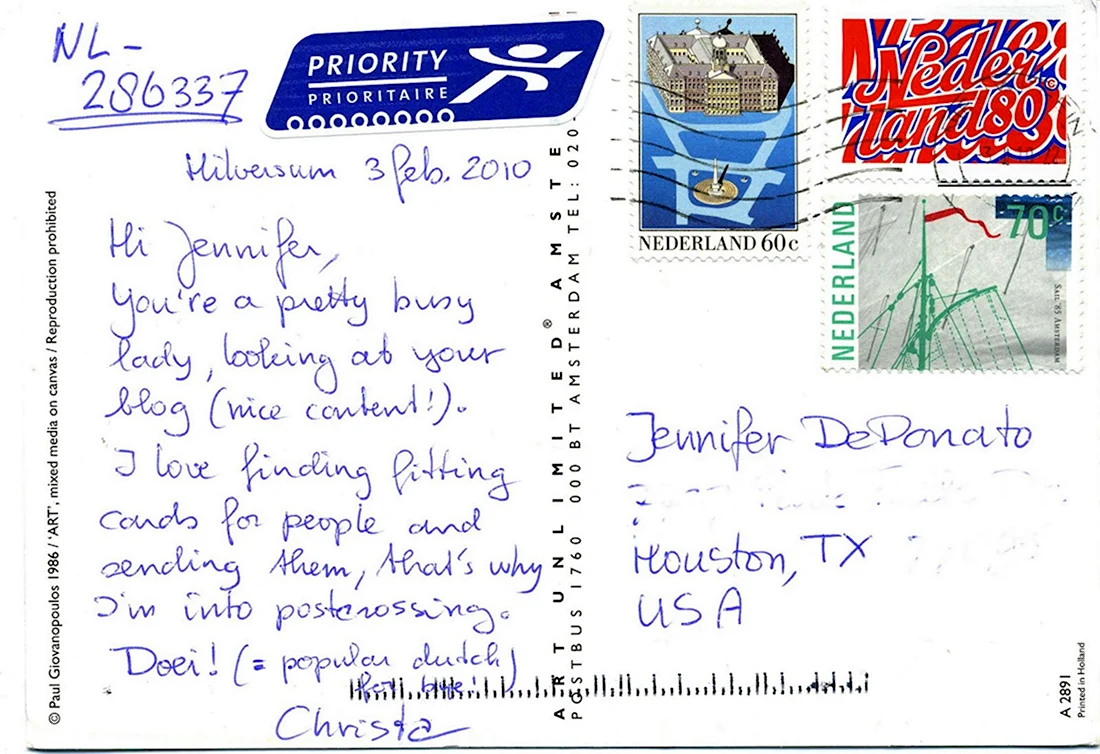 NL-
286337
PRIORITY
PRIORITAIRE
Hilversum 3 feb. 2010
Hi Jennifer,
You're a pretty busy
lady, looking at your
blog (nice content!).
I love finding fitting
cards for people and
sending them, that's why
I'm into postcrossing.
Doei! (= popular dutch)
for bye!
Christa
© Paul Giovanopoulos 1986 / 'ART', mixed media on canvas / Reproduction prohibited
ART UNLIMITED® AMSTE
POSTBUS 1760 000 BT AMSTERDAM TEL: 020-
NEDERLAND 60c
Neder
land 80
NEDERLAND
70c
SAIL '85 AMSTERDAM
Jennifer DeDonato
Houston, TX
USA
A 2891
Printed in Holland